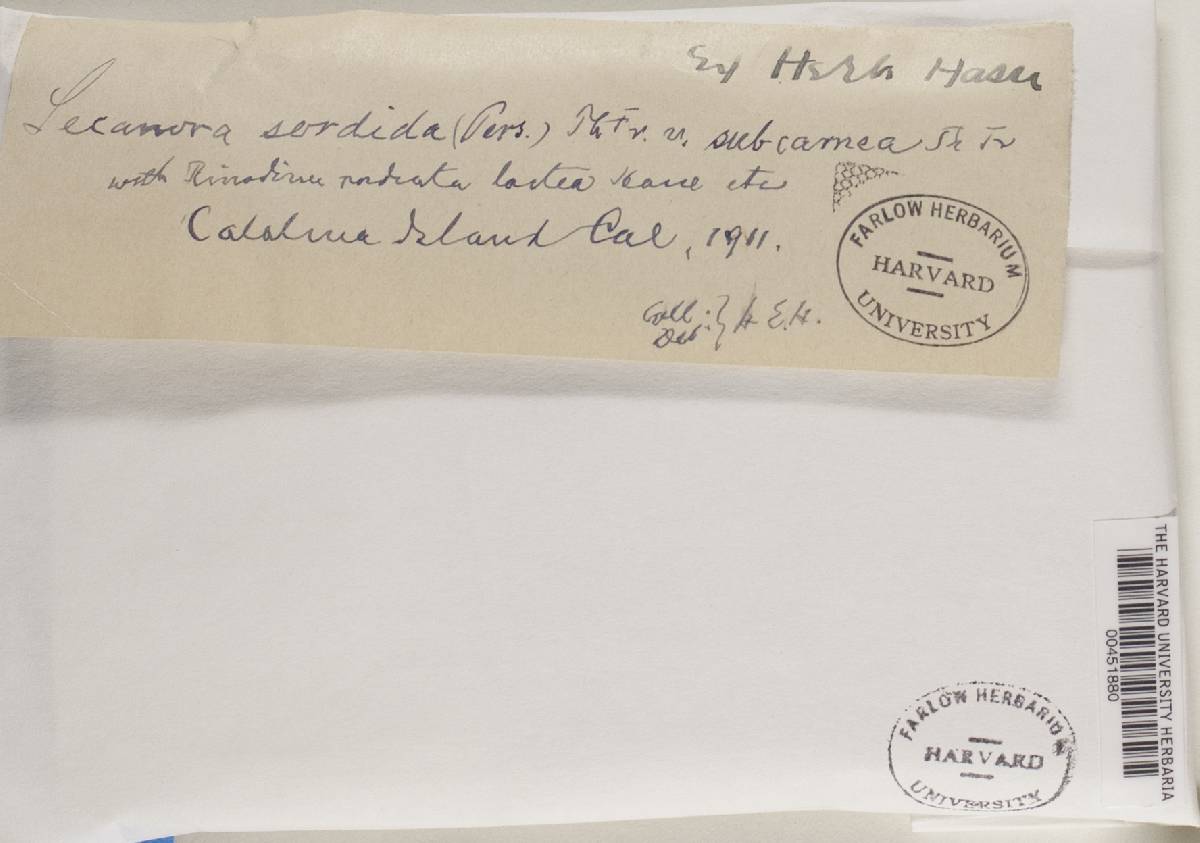 Ex Herb Hasse
Lecanora sordida (Pers.) Th Fr. v. subcarnea Th Fr
with Rinodina radiata lactea etc
Catalina Island Cal, 1911.
Coll.
Det. } H. E. H.
FARLOW HERBARIUM
HARVARD
UNIVERSITY
THE HARVARD UNIVERSITY HERBARIA
00451880
FARLOW HERBARIUM
HARVARD
UNIVERSITY